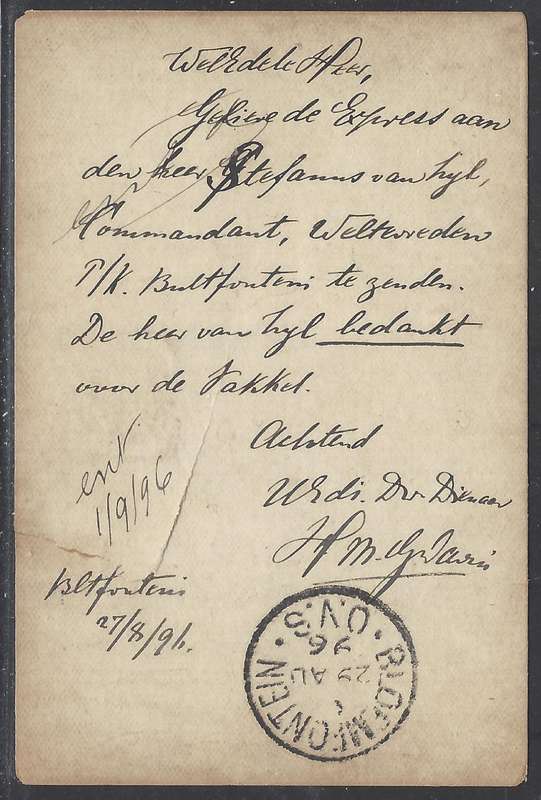 WelEdele Heer,
Gelieve de Express aan
den heer Stefanus van Zyl,
Commandant, Weltevreden
P/K. Bultfontein te zenden.
De heer van Zyl bedankt
voor de Fakkel.
Achtend
UEds. Dw. Dienaar
H. M.
ent.
1/9/96
Bltfontein
27/8/96.
BLOEMFONTEIN
O.V.S.
29 AU
96